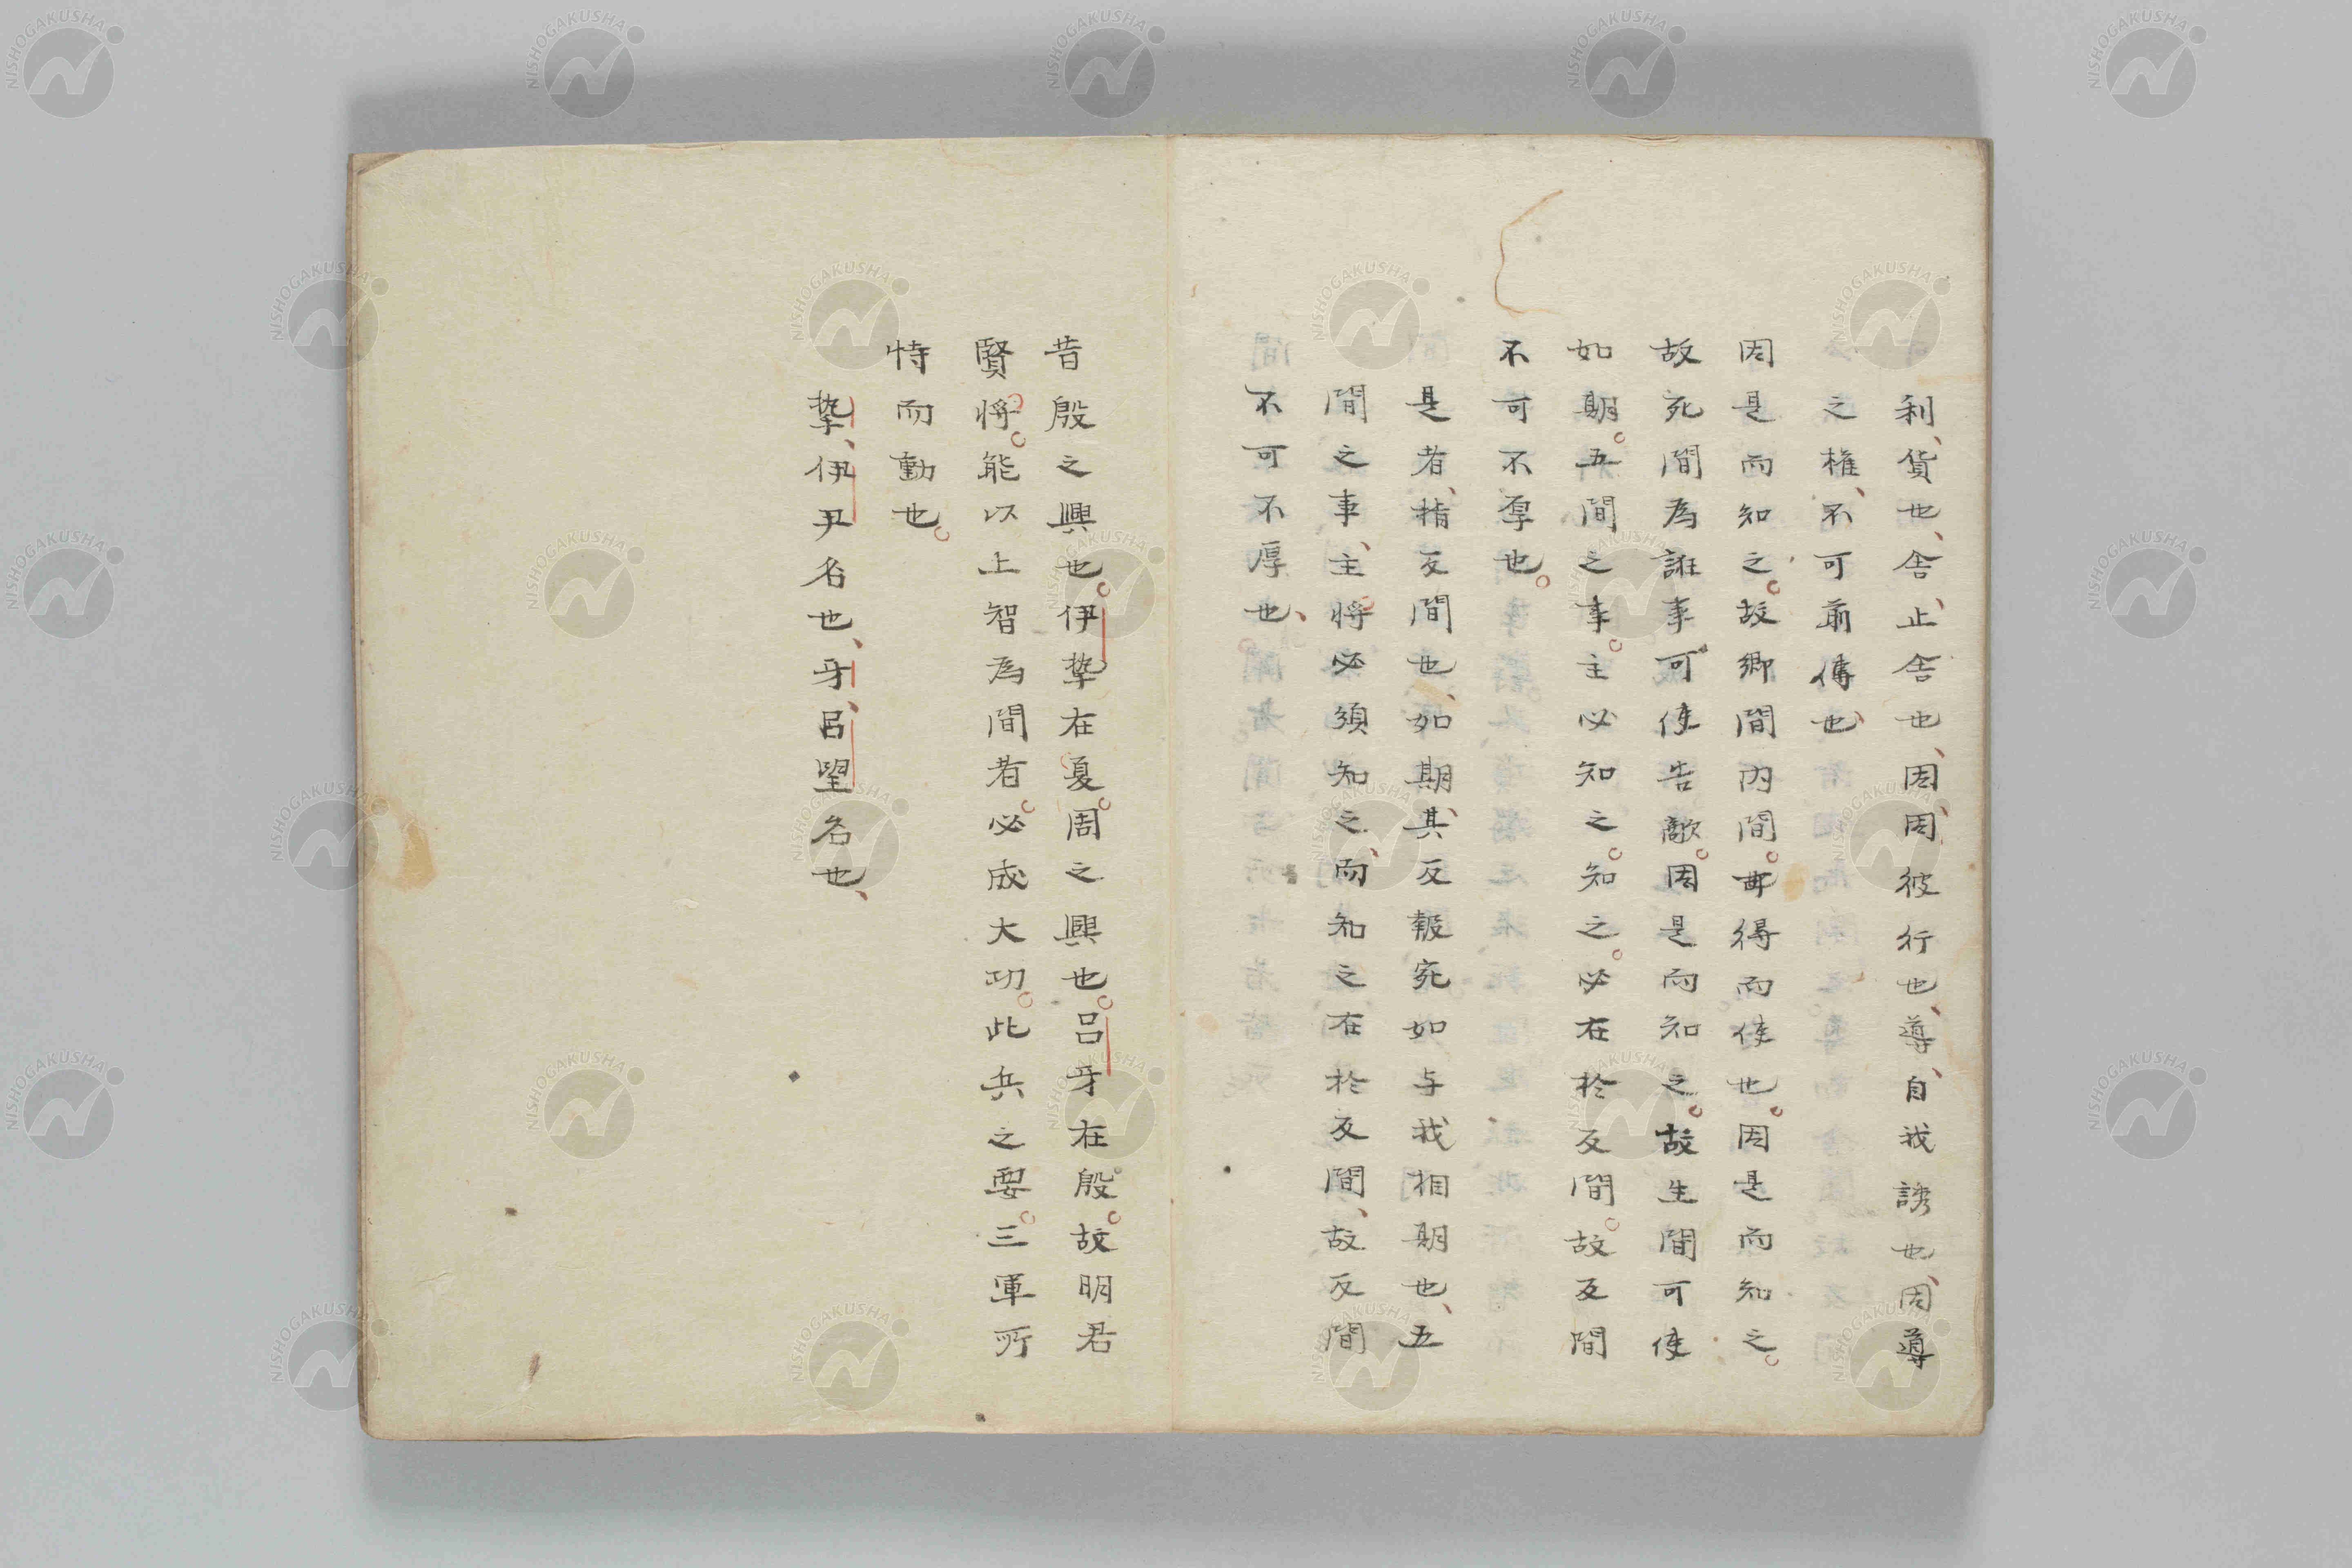 利貨也舎止舎也因因彼行也導自我誘也因導
之権不可前傳也
因是而知之故郷間内間毋得而使也因是而知之
故死間為誑事可使告敵因是而知之故生間可使
如期五間之事主必知之知之必在於反間故反間
不可不厚也
是者指反間也如期其反報宛如与我相期也五
間之事主将必須知之而知之在於反間故反間
不可不厚也
昔殷之興也伊摯在夏周之興也呂牙在殷故明君
賢将能以上智為間者必成大功此兵之要三軍所
恃而動也
摯伊尹名也牙呂望名也